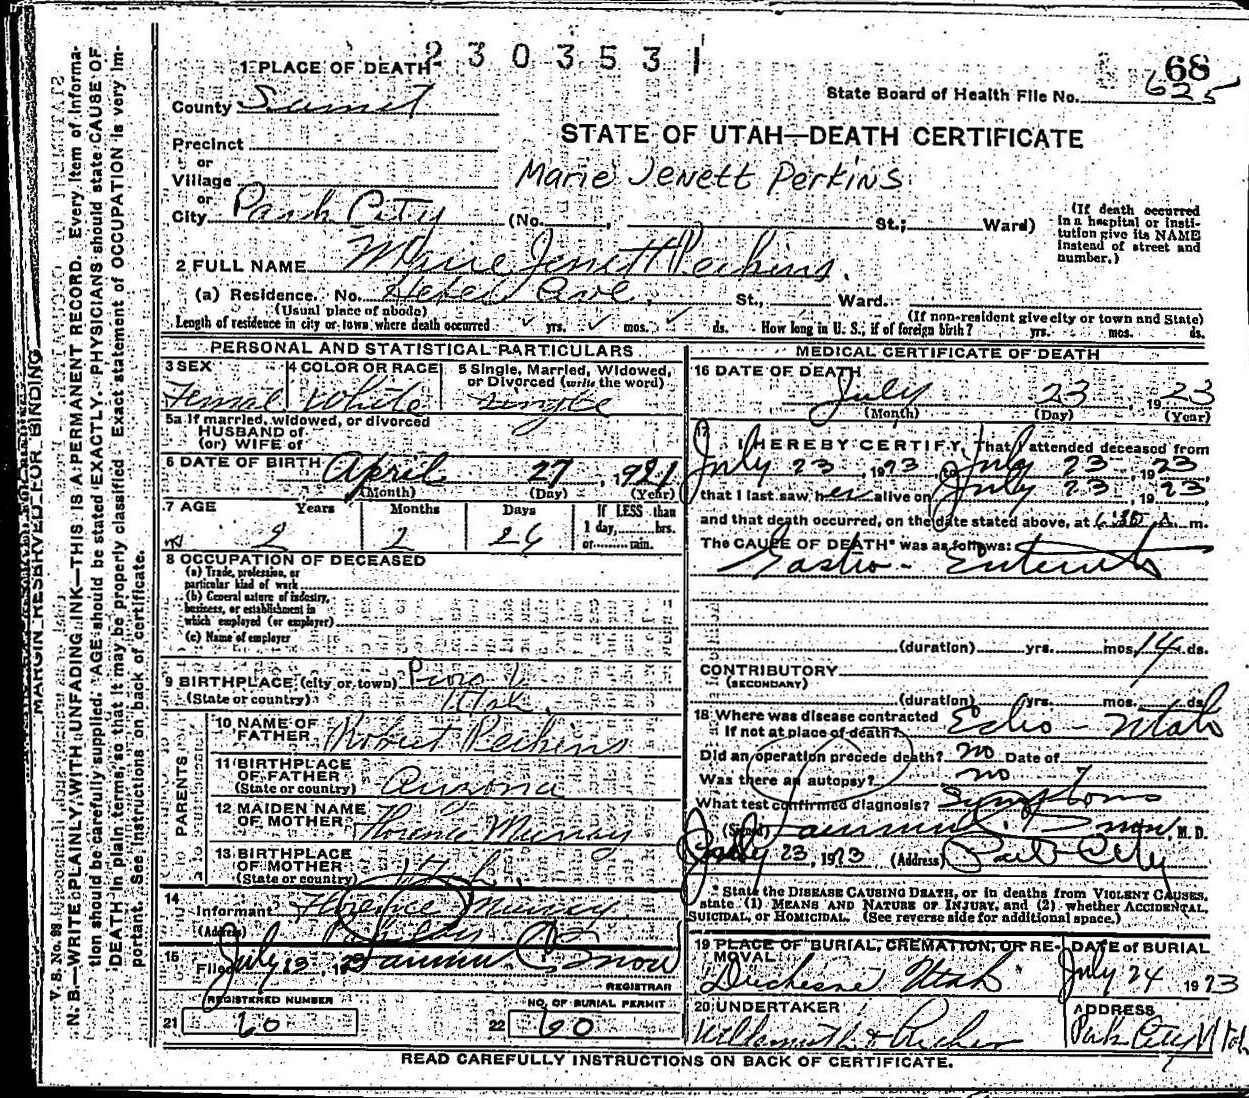 230353
68
1 PLACE OF DEATH
State Board of Health File No. 625
County Summit
STATE OF UTAH—DEATH CERTIFICATE
Precinct
or
Village
Marie Jenett Perkins
or
City Park City (No. , St.; Ward)
(If death occurred in a hospital or institution give its NAME instead of street and number.)
2 FULL NAME Marie Jenett Perkins.
(a) Residence. No. Heber Ave. St., Ward.
(Usual place of abode)
(If non-resident give city or town and State)
Length of residence in city or town where death occurred yrs. mos. ds. How long in U. S., if of foreign birth? yrs. mos. ds.
PERSONAL AND STATISTICAL PARTICULARS
3 SEX
Female
4 COLOR OR RACE
White
5 Single, Married, Widowed, or Divorced (write the word)
Single
5a If married, widowed, or divorced
HUSBAND of
(or) WIFE of
6 DATE OF BIRTH April 27, 1921
(Month) (Day) (Year)
7 AGE Years Months Days
2 2 26
If LESS than
1 day, hrs.
or min.
8 OCCUPATION OF DECEASED
(a) Trade, profession, or
particular kind of work
(b) General nature of industry,
business, or establishment in
which employed (or employer)
(c) Name of employer
9 BIRTHPLACE (city or town)
(State or country) Utah.
PARENTS
10 NAME OF FATHER Robert Perkins
11 BIRTHPLACE OF FATHER
(State or country) Arizona
12 MAIDEN NAME OF MOTHER Florence Murray
13 BIRTHPLACE OF MOTHER
(State or country) Utah.
14
Informant Florence Murray
(Address)
15
Filed July 23 1923
Snow
REGISTRAR
REGISTERED NUMBER
21 60
NO. OF BURIAL PERMIT
22 60
MEDICAL CERTIFICATE OF DEATH
16 DATE OF DEATH
July 23, 1923
(Month) (Day) (Year)
17 I HEREBY CERTIFY, That I attended deceased from
July 23, 1923 to July 23, 1923
that I last saw her alive on July 23, 1923,
and that death occurred, on the date stated above, at m.
The CAUSE OF DEATH* was as follows:
Gastro-Enteritis
(duration) yrs. mos. 14 ds.
CONTRIBUTORY
(SECONDARY)
(duration) yrs. mos. ds.
18 Where was disease contracted
If not at place of death? Echo-Utah
Did an operation precede death? no Date of
Was there an autopsy? no
What test confirmed diagnosis? Symptoms
(Signed) Snow, M. D.
July 23, 1923 (Address) Park City
* State the DISEASE CAUSING DEATH, or in deaths from VIOLENT CAUSES,
state (1) MEANS AND NATURE OF INJURY, and (2) whether ACCIDENTAL,
SUICIDAL, or HOMICIDAL. (See reverse side for additional space.)
19 PLACE OF BURIAL, CREMATION, OR REMOVAL
Duchesne Utah
DATE of BURIAL
July 24 1923
20 UNDERTAKER
ADDRESS
Park City Utah
READ CAREFULLY INSTRUCTIONS ON BACK OF CERTIFICATE.
MARGIN RESERVED FOR BINDING
V. S. No. 98
N. B.—WRITE PLAINLY, WITH UNFADING INK—THIS IS A PERMANENT RECORD. Every item of information should be carefully supplied. AGE should be stated EXACTLY. PHYSICIANS should state CAUSE OF DEATH in plain terms, so that it may be properly classified. Exact statement of OCCUPATION is very important. See instructions on back of certificate.